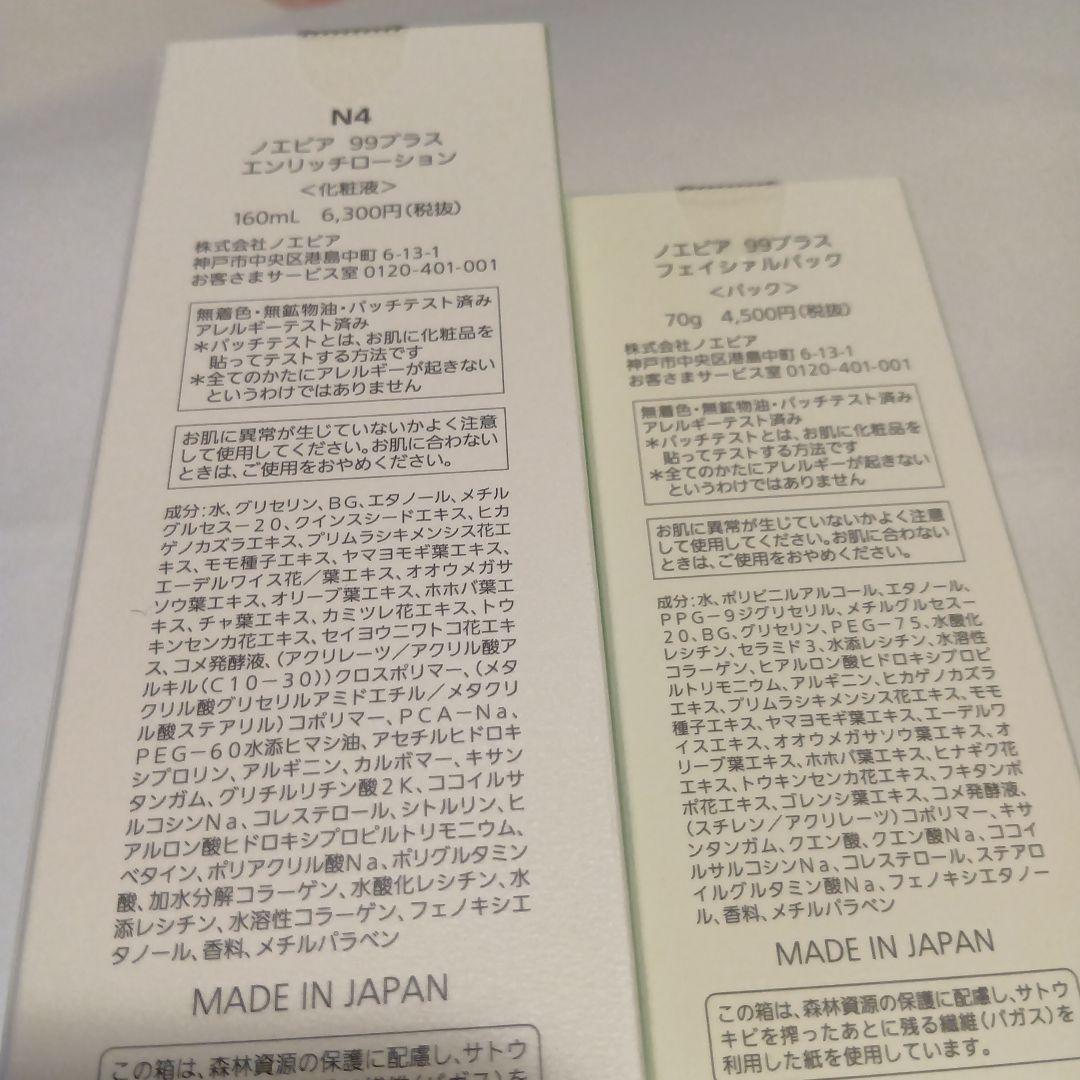 N4
ノエビア 99プラス
エンリッチローション
＜化粧液＞
160mL 6,300円(税抜)
株式会社ノエビア
神戸市中央区港島中町 6-13-1
お客さまサービス室 0120-401-001
無着色・無鉱物油・パッチテスト済み
アレルギーテスト済み
＊パッチテストとは、お肌に化粧品を
貼ってテストする方法です
＊全てのかたにアレルギーが起きない
というわけではありません
お肌に異常が生じていないかよく注意
して使用してください。お肌に合わない
ときは、ご使用をおやめください。
成分：水、グリセリン、BG、エタノール、メチル
グルセスー20、クインスシードエキス、ヒカ
ゲノカズラエキス、プリムラシキメンシス花エ
キス、モモ種子エキス、ヤマヨモギ葉エキス、
エーデルワイス花／葉エキス、オオウメガサ
ソウ葉エキス、オリーブ葉エキス、ホホバ葉エ
キス、チャ葉エキス、カミツレ花エキス、トウ
キンセンカ花エキス、セイヨウニワトコ花エキ
ス、コメ発酵液、(アクリレーツ／アクリル酸ア
ルキル(C10－30))クロスポリマー、(メタ
クリル酸グリセリルアミドエチル／メタクリ
ル酸ステアリル)コポリマー、PCA－Na、
PEG－60水添ヒマシ油、アセチルヒドロキ
シプロリン、アルギニン、カルボマー、キサン
タンガム、グリチルリチン酸2K、ココイルサ
ルコシンNa、コレステロール、シトルリン、ヒ
アルロン酸ヒドロキシプロピルトリモニウム、
ベタイン、ポリアクリル酸Na、ポリグルタミン
酸、加水分解コラーゲン、水酸化レシチン、水
添レシチン、水溶性コラーゲン、フェノキシエ
タノール、香料、メチルパラベン
MADE IN JAPAN
この箱は、森林資源の保護に配慮し、サトウ
ノエビア 99プラス
フェイシァルパック
＜パック＞
70g 4,500円(税抜)
株式会社ノエビア
神戸市中央区港島中町 6-13-1
お客さまサービス室 0120-401-001
無着色・無鉱物油・パッチテスト済み
アレルギーテスト済み
＊パッチテストとは、お肌に化粧品を
貼ってテストする方法です
＊全てのかたにアレルギーが起きない
というわけではありません
お肌に異常が生じていないかよく注意
して使用してください。お肌に合わない
ときは、ご使用をおやめください。
成分：水、ポリビニルアルコール、エタノール、
PPG－9ジグリセリル、メチルグルセスー
20、BG、グリセリン、PEG－75、水酸化
レシチン、セラミド3、水添レシチン、水溶性
コラーゲン、ヒアルロン酸ヒドロキシプロピ
ルトリモニウム、アルギニン、ヒカゲノカズラ
エキス、プリムラシキメンシス花エキス、モモ
種子エキス、ヤマヨモギ葉エキス、エーデルワ
イスエキス、オオウメガサソウ葉エキス、オ
リーブ葉エキス、ホホバ葉エキス、ヒナギク花
エキス、トウキンセンカ花エキス、フキタンポ
ポ花エキス、ゴレンシ葉エキス、コメ発酵液、
(スチレン／アクリレーツ)コポリマー、キサ
ンタンガム、クエン酸、クエン酸Na、ココイ
ルサルコシンNa、コレステロール、ステアロ
イルグルタミン酸Na、フェノキシエタノー
ル、香料、メチルパラベン
MADE IN JAPAN
この箱は、森林資源の保護に配慮し、サトウ
キビを搾ったあとに残る繊維(バガス)を
利用した紙を使用しています。